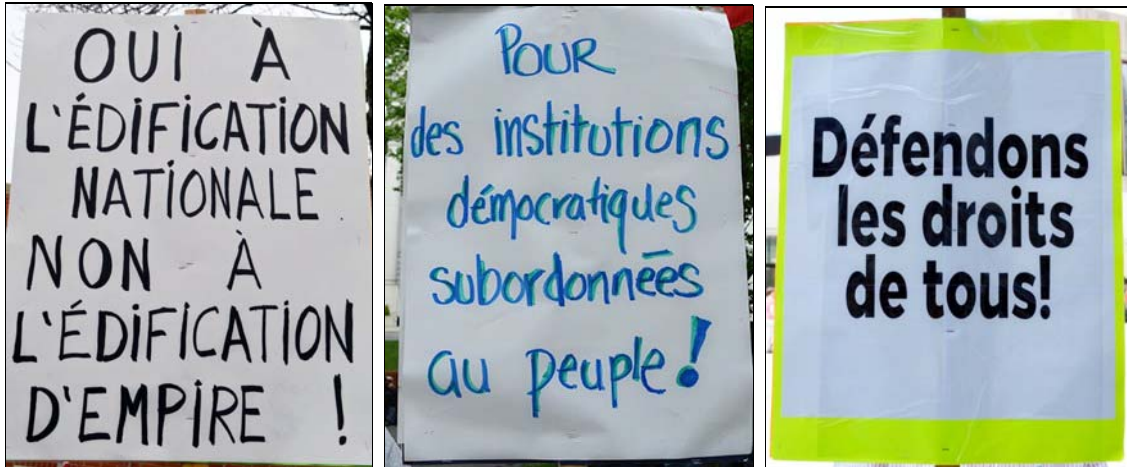 OUI À
L'ÉDIFICATION
NATIONALE
NON À
L'ÉDIFICATION
D'EMPIRE !
POUR
des institutions
démocratiques
subordonnées
au peuple !
Défendons
les droits
de tous!